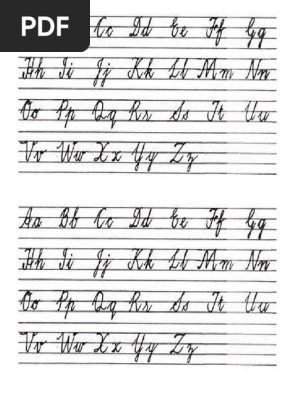 PDF
Cc Dd Ee Ff Gg
Hh Ii Jj Kk Ll Mm Nn
Oo Pp Qq Rr Ss Tt Uu
Vv Ww Xx Yy Zz
Aa Bb Cc Dd Ee Ff Gg
Hh Ii Jj Kk Ll Mm Nn
Oo Pp Qq Rr Ss Tt Uu
Vv Ww Xx Yy Zz